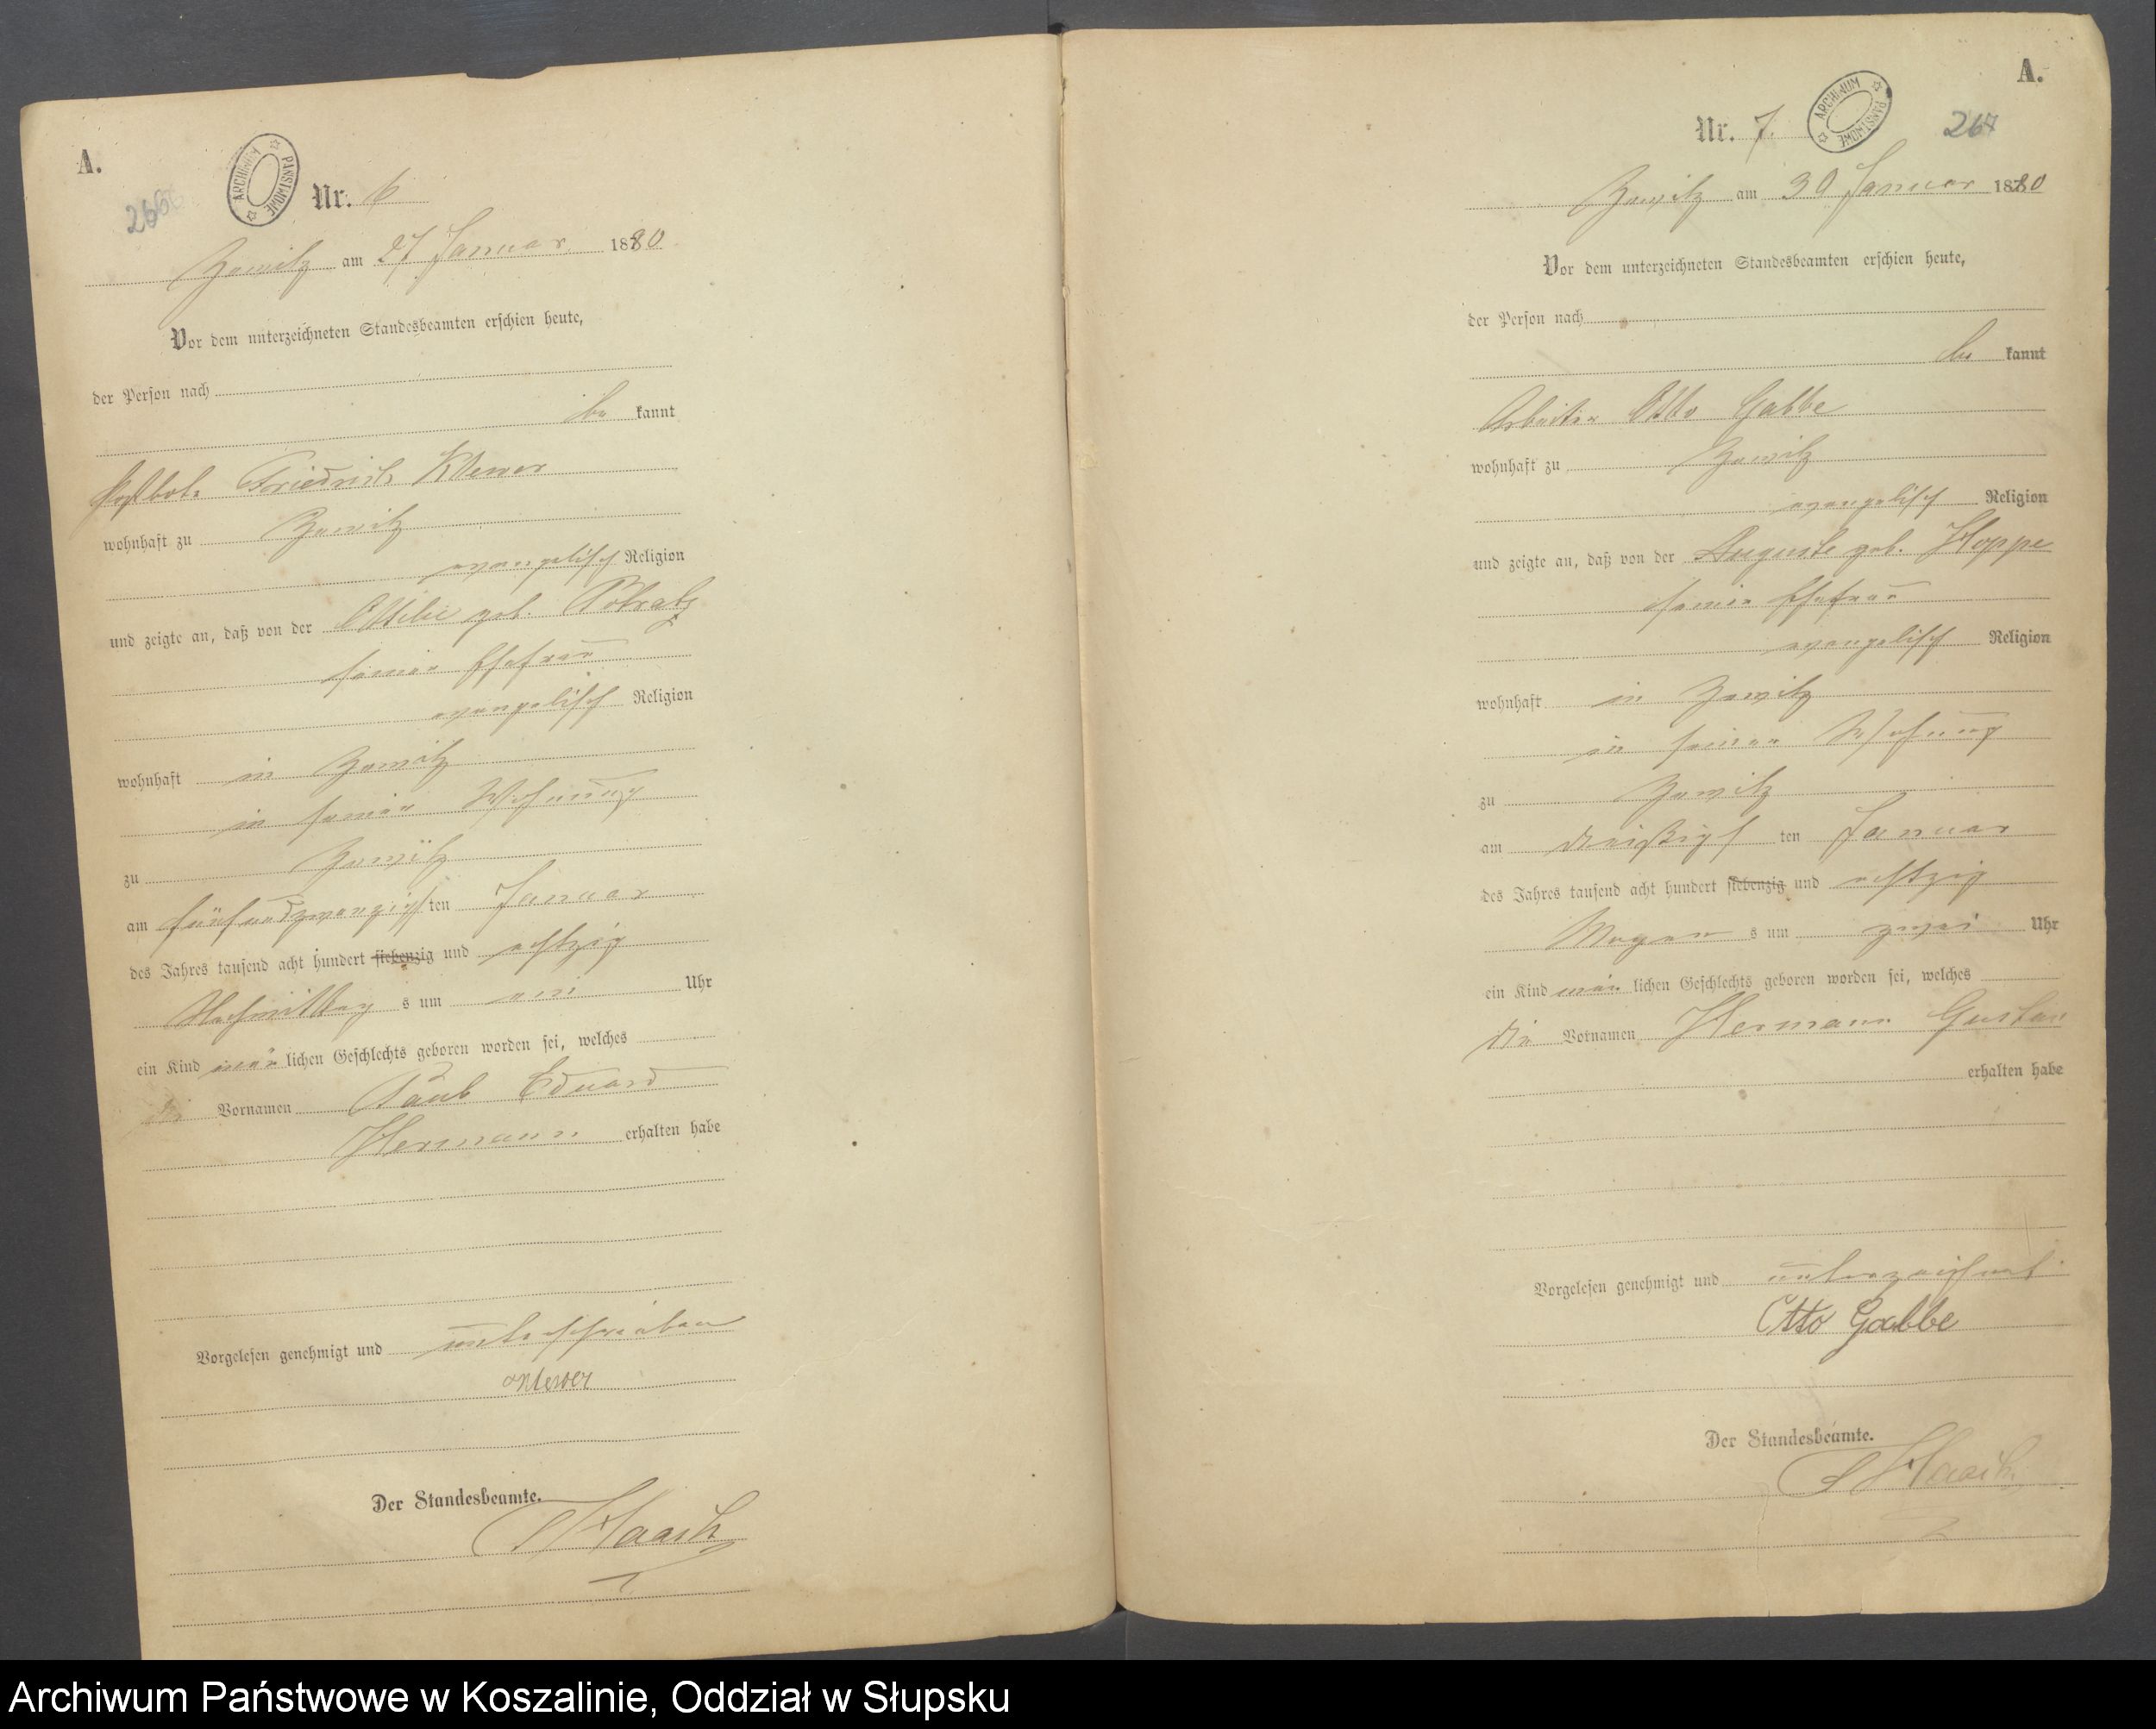 A.
266
ARCHIWUM PAŃSTWOWE
Nr. 6
Zewitz am 27 Januar 1880
Vor dem unterzeichneten Standesbeamten erschien heute,
der Person nach
be kannt
Postbote Friedrich
wohnhaft zu Zewitz
evangelisch Religion
und zeigte an, daß von der Ottilie geb. Pobratz
seiner Ehefrau
evangelisch Religion
wohnhaft in Zewitz
in seiner Wohnung
zu Zewitz
am fünfundzwanzigsten Januar
des Jahres tausend acht hundert siebenzig und achtzig
Nachmittag s um ein Uhr
ein Kind män lichen Geschlechts geboren worden sei, welches
die Vornamen Paul Eduard
Hermann erhalten habe
Vorgelesen genehmigt und unterschrieben
Der Standesbeamte.
Haack
A.
267
ARCHIWUM PAŃSTWOWE
Nr. 7.
Zewitz am 30 Januar 1880
Vor dem unterzeichneten Standesbeamten erschien heute,
der Person nach
be kannt
Arbeiter Otto Gabbe
wohnhaft zu Zewitz
evangelisch Religion
und zeigte an, daß von der Auguste geb. Hoppe
seiner Ehefrau
evangelisch Religion
wohnhaft in Zewitz
in seiner Wohnung
zu Zewitz
am dreißigs ten Januar
des Jahres tausend acht hundert siebenzig und achtzig
Morgen s um zwei Uhr
ein Kind män lichen Geschlechts geboren worden sei, welches
die Vornamen Hermann Gustav
erhalten habe
Vorgelesen genehmigt und unterzeichnet
Otto Gabbe
Der Standesbeamte.
Haack
Archiwum Państwowe w Koszalinie, Oddział w Słupsku